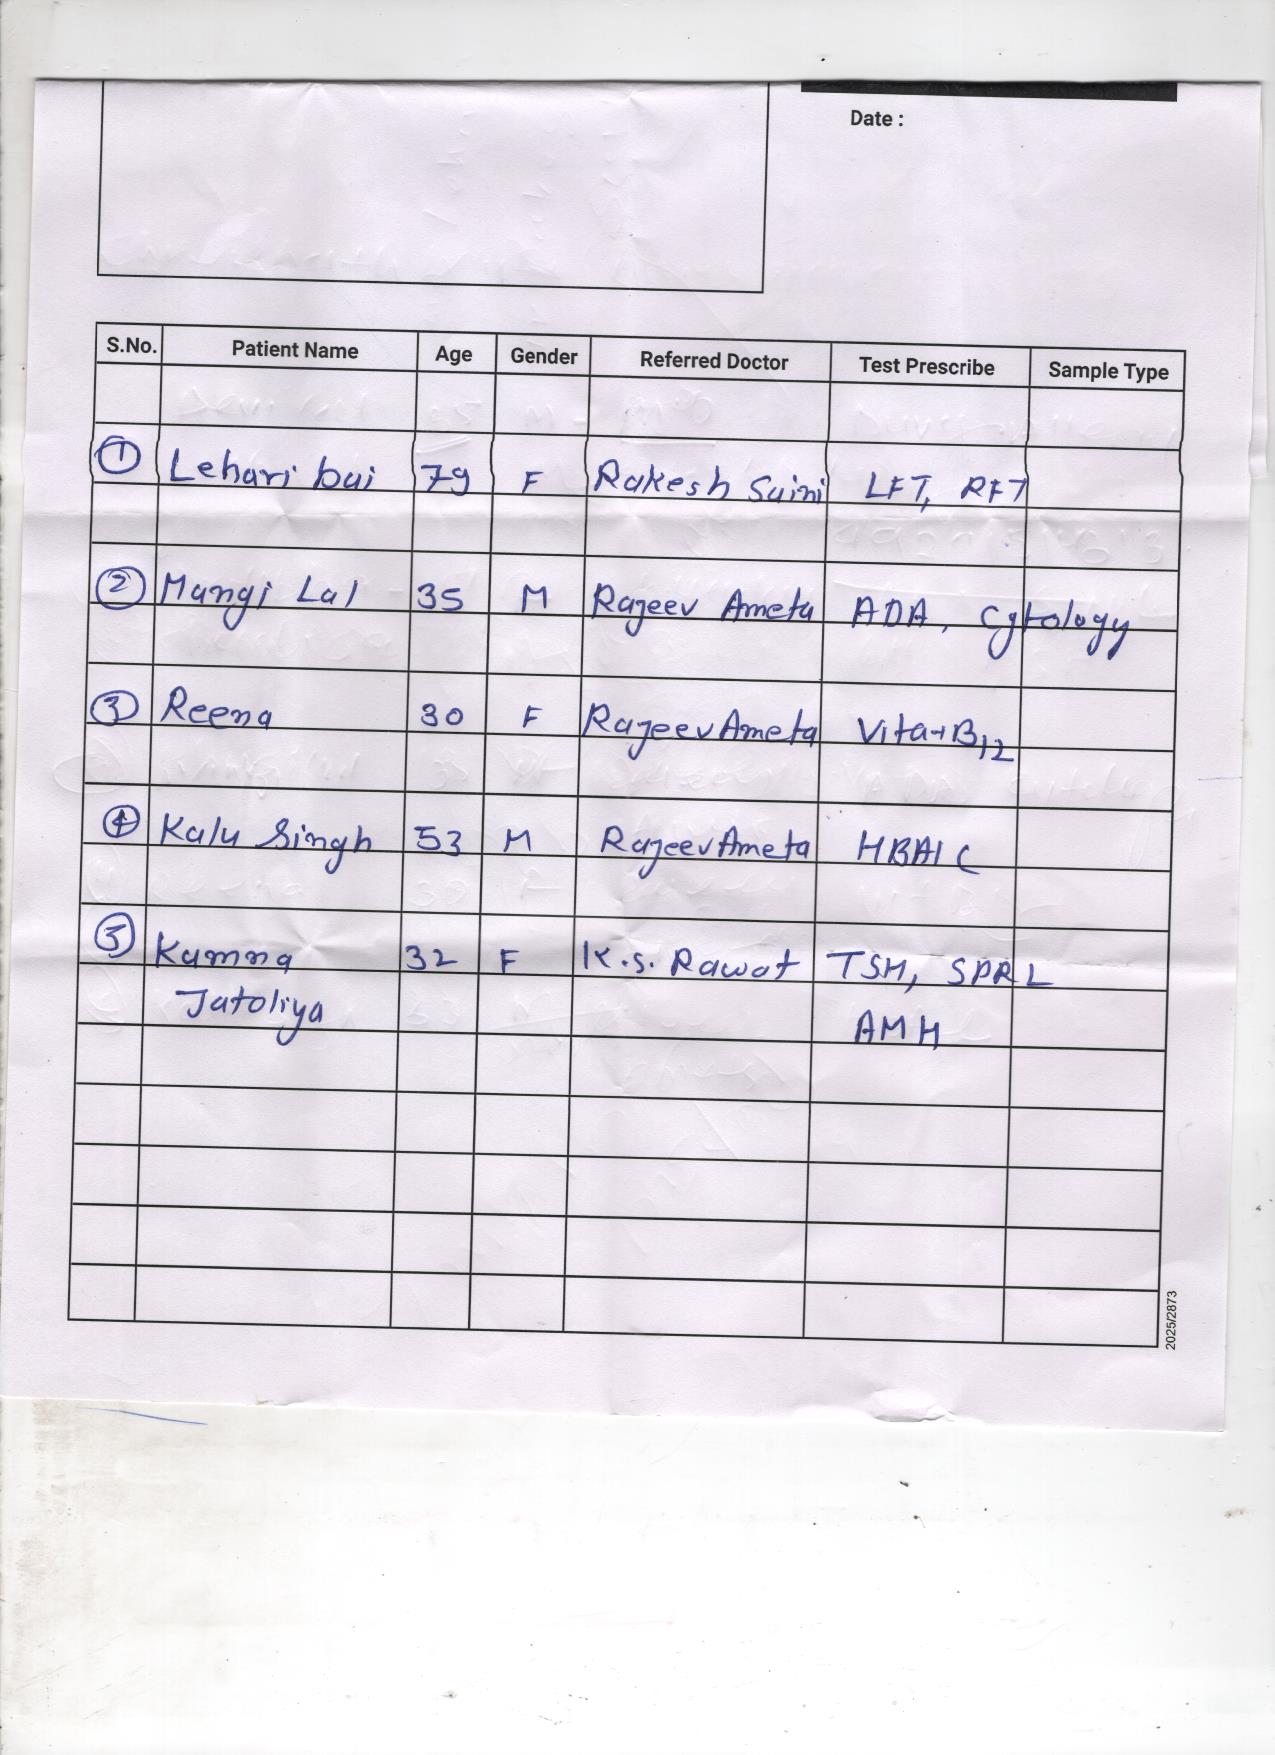 Date :
S.No. Patient Name Age Gender Referred Doctor Test Prescribe Sample Type
1 Lehari bai 79 F Rakesh Saini LFT, RFT
2 Mangi Lal 35 M Rajeev Ameta ADA, Cytology
3 Reena 30 F Rajeev Ameta Vita-B12
4 Kalu Singh 53 M Rajeev Ameta HBA1C
5 Kamna 32 F K.S. Rawat TSH, SPRL
Jatoliya AMH
2025/2873